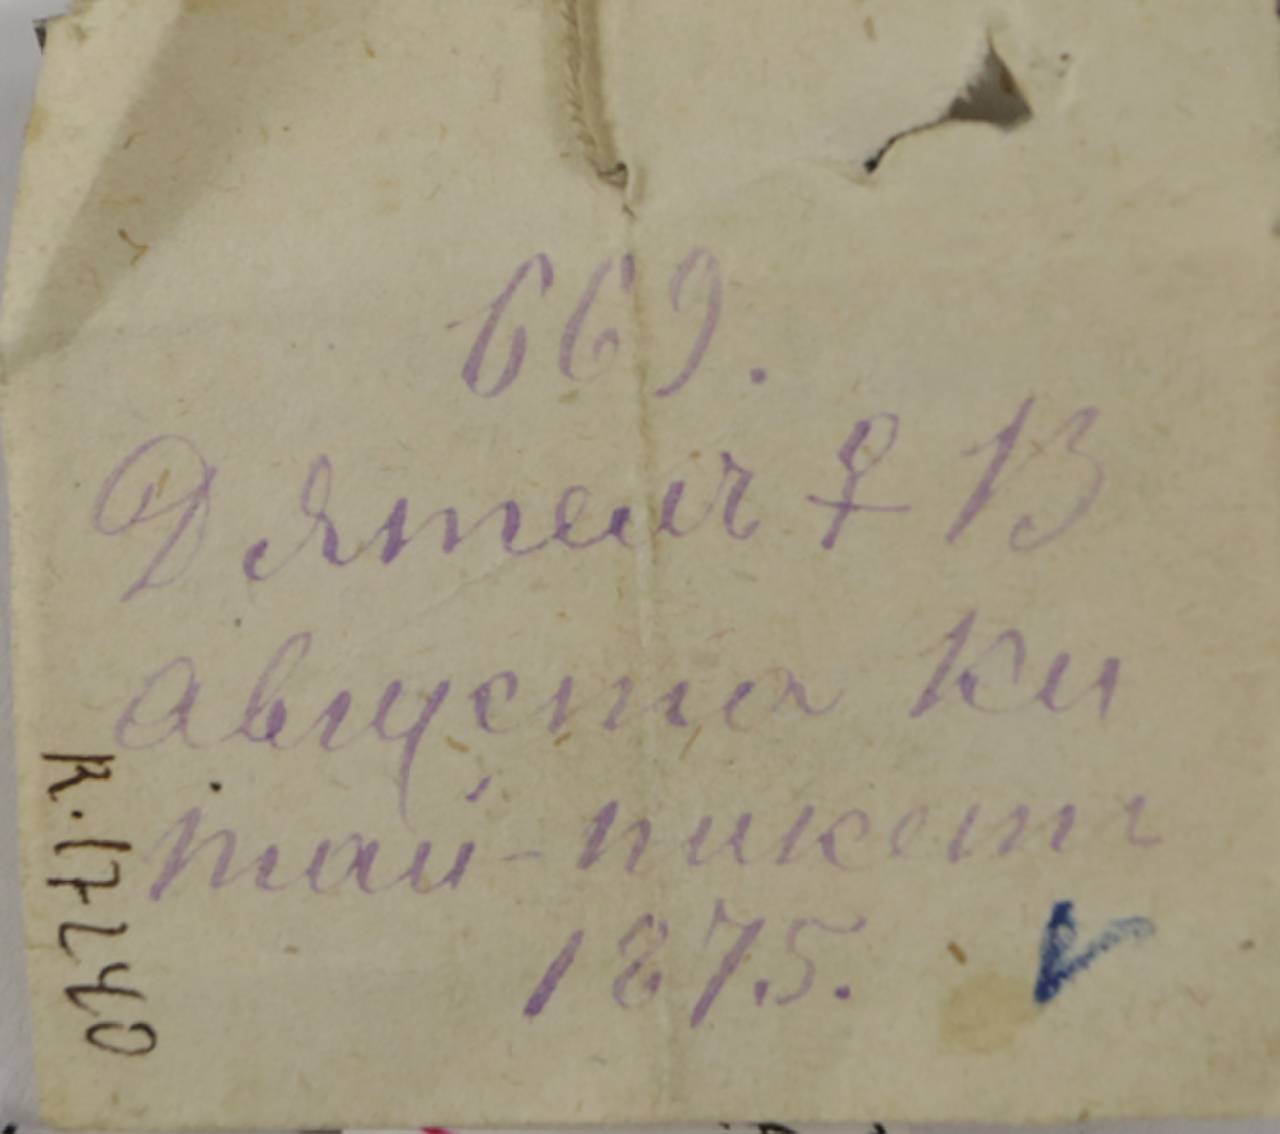 669.
Дятелъ ♀ 13
Августа Ки
тай-пикетъ
1875.
к. 17240